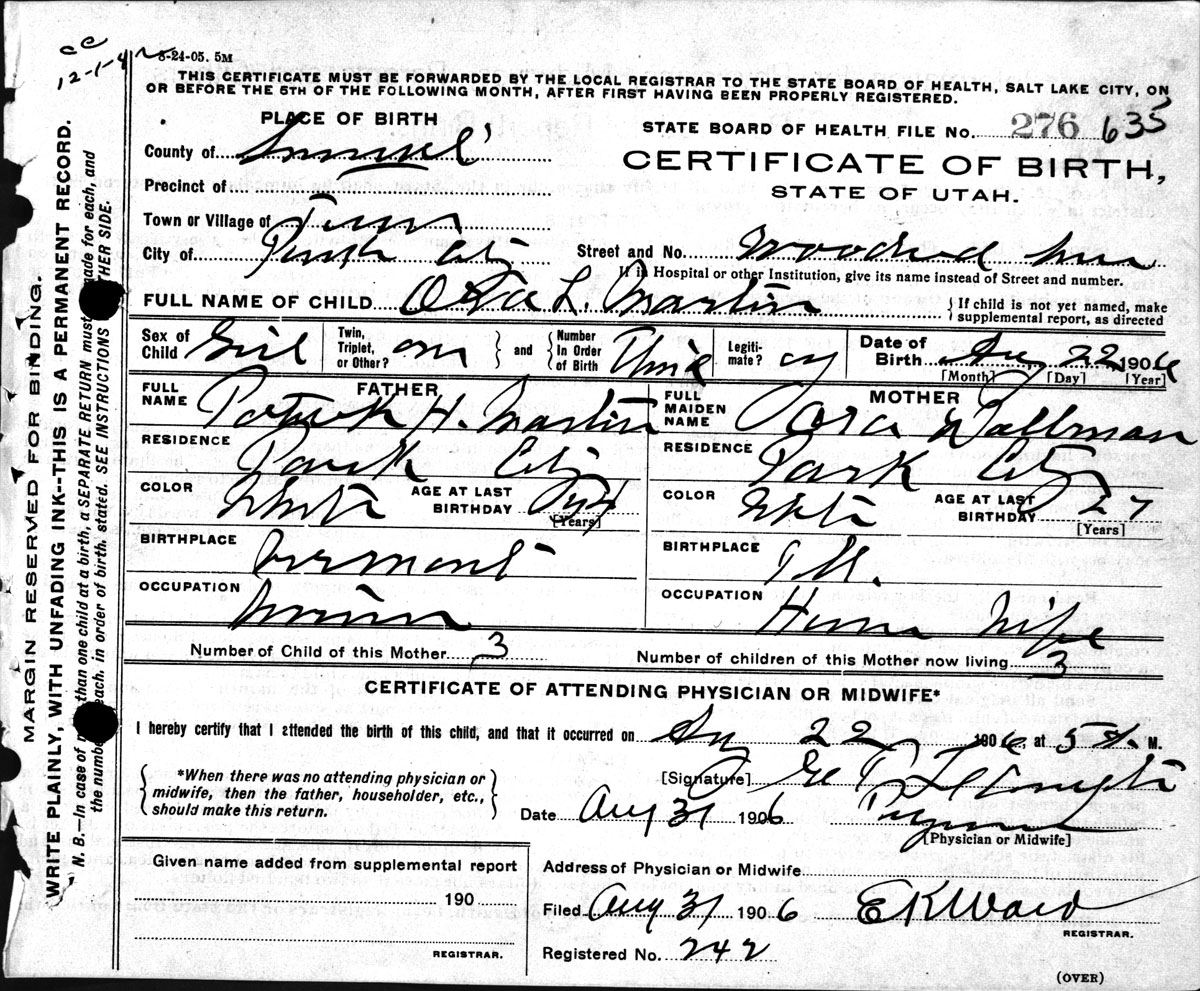 cc
12-1-4
8-24-05. 5M
THIS CERTIFICATE MUST BE FORWARDED BY THE LOCAL REGISTRAR TO THE STATE BOARD OF HEALTH, SALT LAKE CITY, ON
OR BEFORE THE 5TH OF THE FOLLOWING MONTH, AFTER FIRST HAVING BEEN PROPERLY REGISTERED.
PLACE OF BIRTH
STATE BOARD OF HEALTH FILE No. 276 635
County of Summit
CERTIFICATE OF BIRTH,
STATE OF UTAH.
Precinct of
Town or Village of
City of Park City
Street and No. Woodside
If in Hospital or other Institution, give its name instead of Street and number.
FULL NAME OF CHILD L. Martin
If child is not yet named, make
supplemental report, as directed
Sex of Child Girl
Twin, Triplet, or Other? one
and
Number In Order of Birth Third
Legitimate?
Date of Birth Aug 22 1906
[Month] [Day] [Year]
FATHER
FULL NAME Patrick H. Martin
MOTHER
FULL MAIDEN NAME Cora Dallman
RESIDENCE Park City
RESIDENCE Park City
COLOR White AGE AT LAST BIRTHDAY
[Years]
COLOR White AGE AT LAST BIRTHDAY 27
[Years]
BIRTHPLACE Vermont
BIRTHPLACE Ill.
OCCUPATION Miner
OCCUPATION House Wife
Number of Child of this Mother 3
Number of children of this Mother now living 3
CERTIFICATE OF ATTENDING PHYSICIAN OR MIDWIFE*
I hereby certify that I attended the birth of this child, and that it occurred on Aug 22 1906, at 5 M.
*When there was no attending physician or
midwife, then the father, householder, etc.,
should make this return.
[Signature]
Date Aug 31 1906
[Physician or Midwife]
Given name added from supplemental report
190
REGISTRAR.
Address of Physician or Midwife
Filed Aug 31 1906 E K Ward
REGISTRAR.
Registered No. 242
(OVER)
MARGIN RESERVED FOR BINDING.
WRITE PLAINLY, WITH UNFADING INK--THIS IS A PERMANENT RECORD.
N. B.—In case of than one child at a birth, a SEPARATE RETURN must made for each, and
the number each, in order of birth, stated. SEE INSTRUCTIONS THER SIDE.